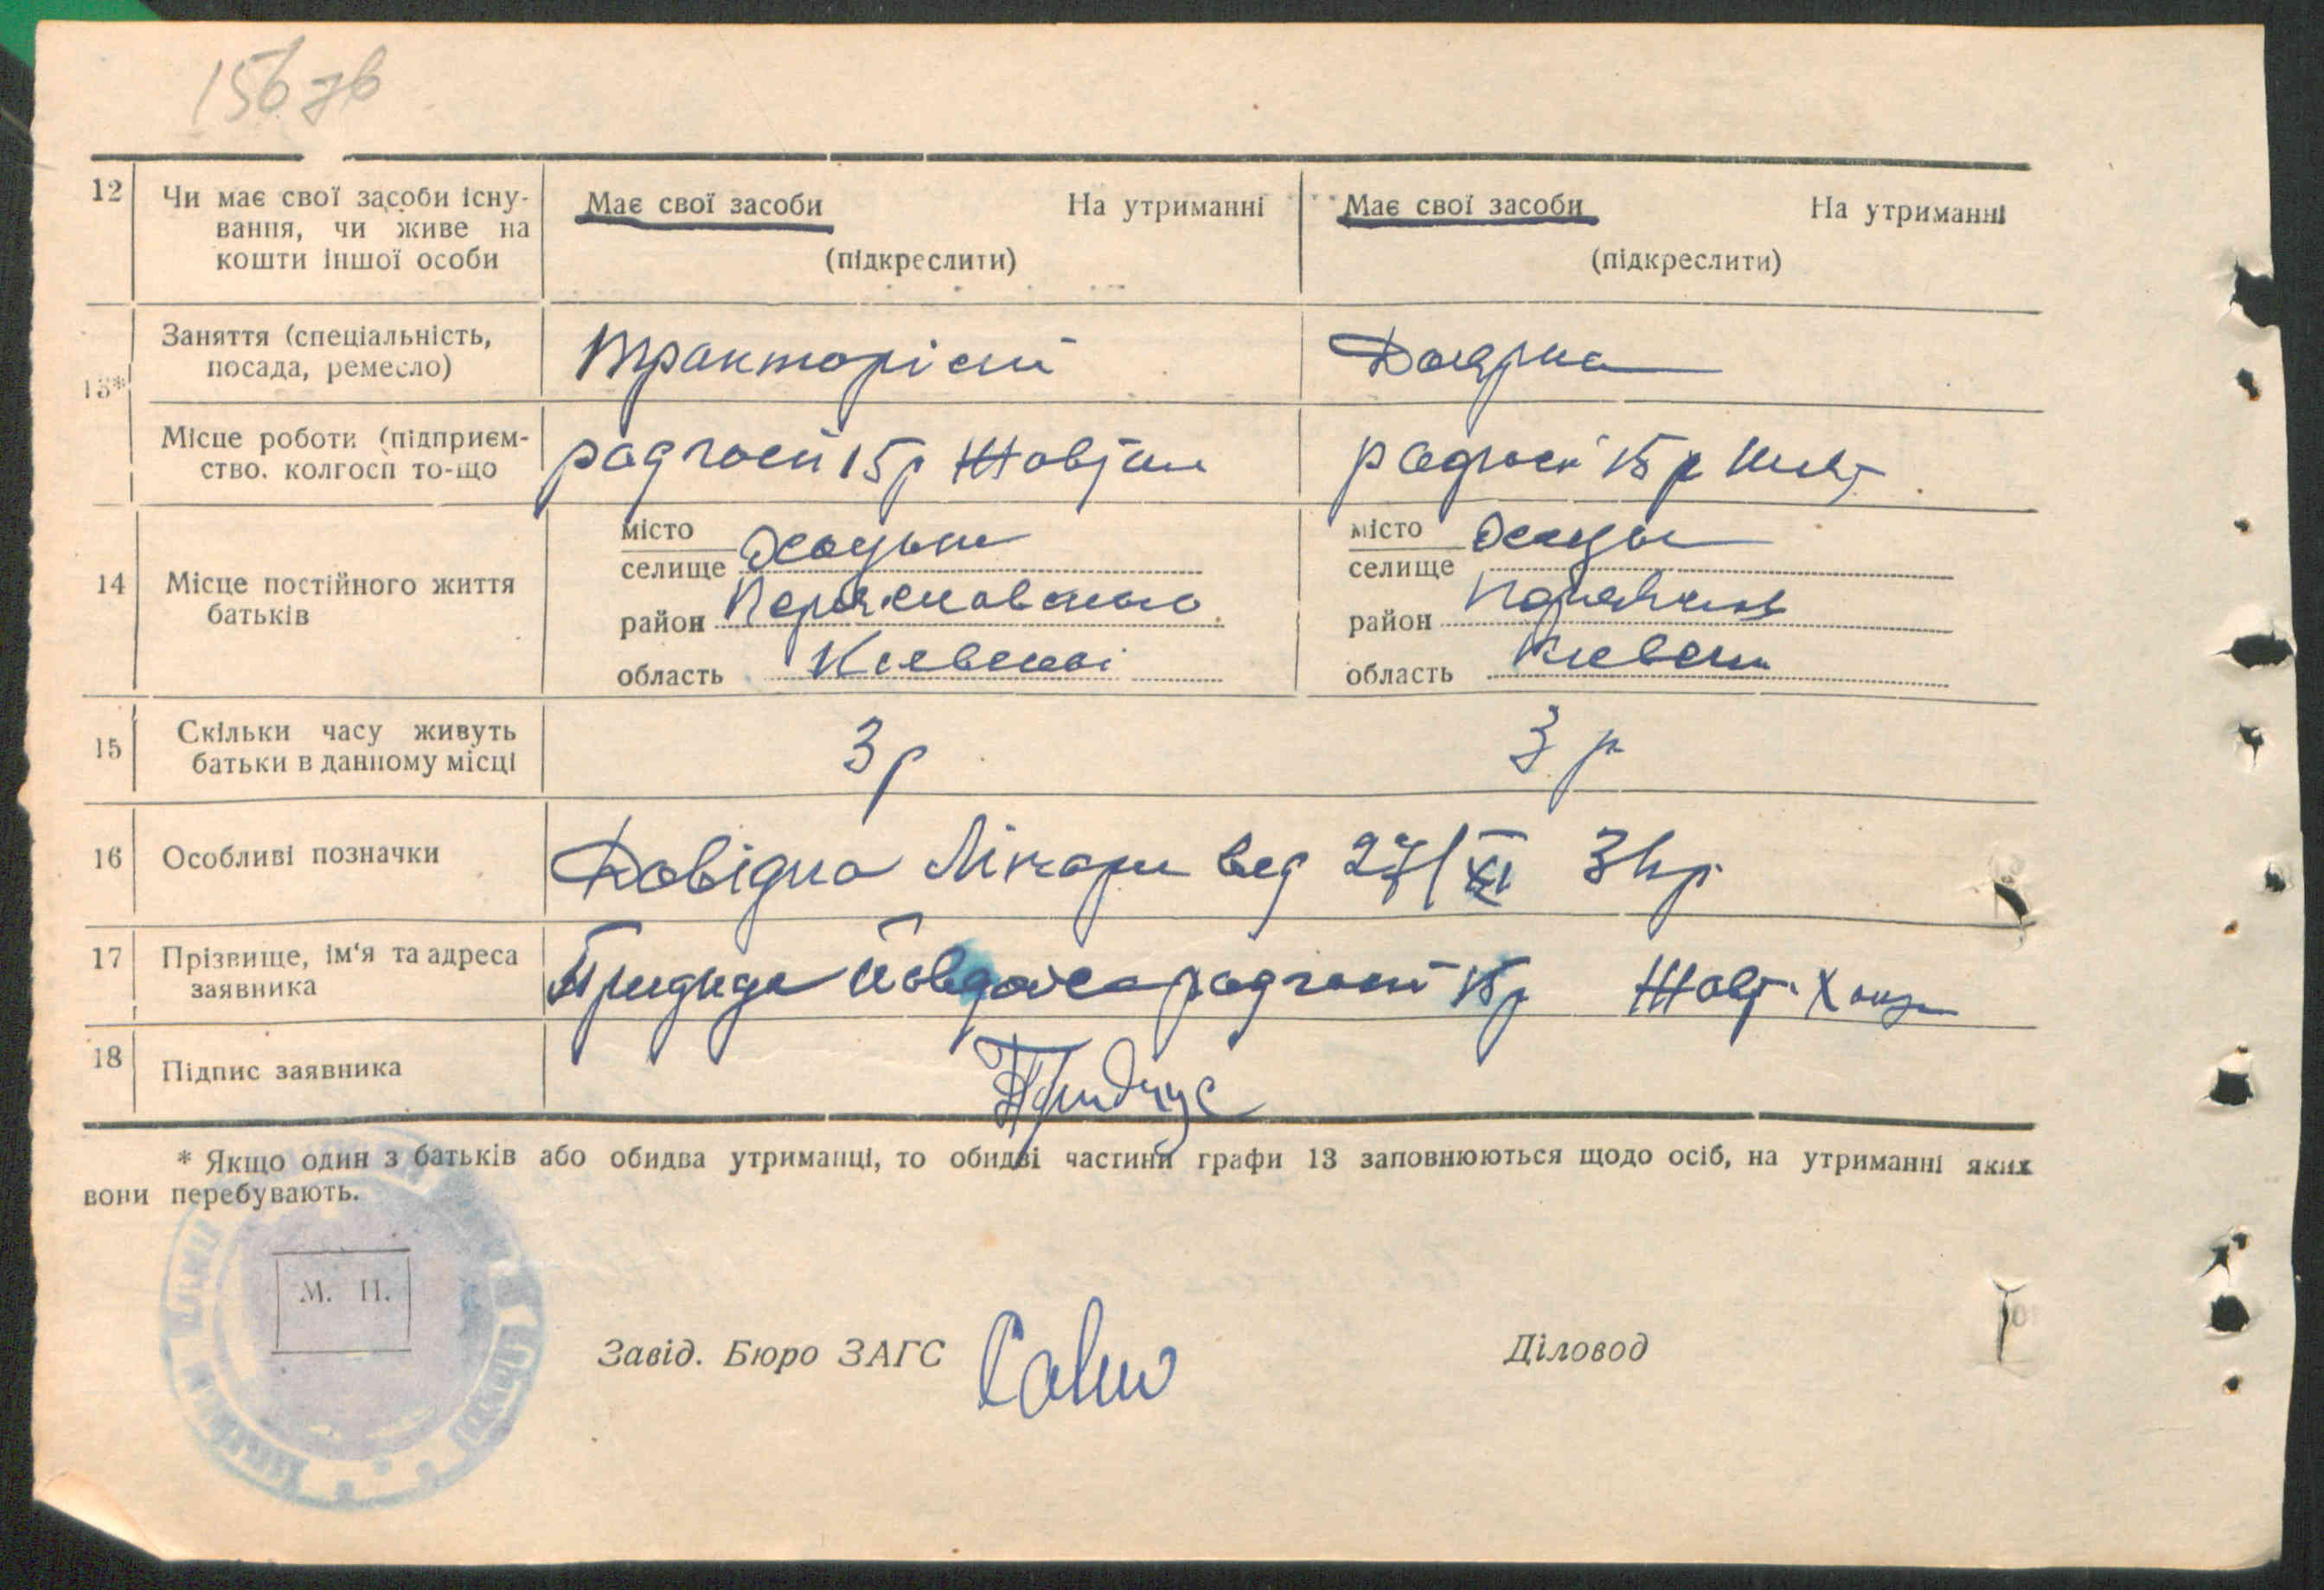 156 зв
12 Чи має свої засоби існу-
вання, чи живе на
кошти іншої особи
Має свої засоби На утриманні
(підкреслити)
Має свої засоби На утриманні
(підкреслити)
13* Заняття (спеціальність,
посада, ремесло)
тракторіст
Доярка
Місце роботи (підприєм-
ство, колгосп то-що
радгосп 15 р Жовтня
радгосп 15 р Жовт
14 Місце постійного життя
батьків
місто
селище
район
область Киевскої
місто
селище
район
область
15 Скільки часу живуть
батьки в данному місці
3 р
3 р
16 Особливі позначки
Довідка Лікаря від 27/XI 34р
17 Прізвище, ім'я та адреса
заявника
радгосп 15 р Жовт.
18 Підпис заявника
* Якщо один з батьків або обидва утриманці, то обидві частини графи 13 заповнюються щодо осіб, на утриманні яких
вони перебувають.
М. П.
Завід. Бюро ЗАГС
Діловод